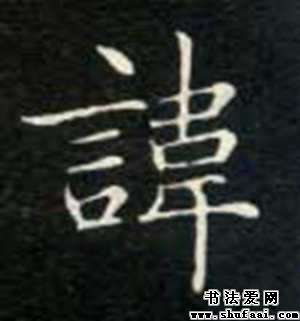 諱
书法爱网
www.shufaai.com